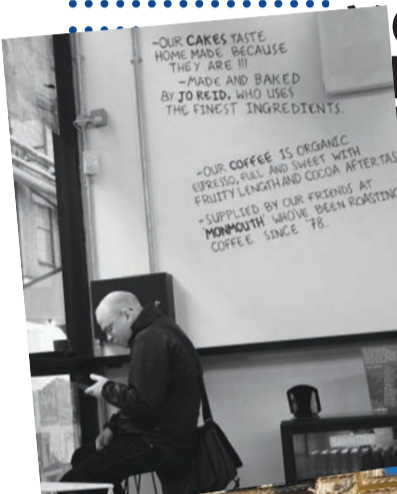 -OUR CAKES TASTE
HOME MADE BECAUSE
THEY ARE !!!
-MADE AND BAKED
BY JO REID. WHO USES
THE FINEST INGREDIENTS.
-OUR COFFEE IS ORGANIC
ESPRESSO, FULL AND SWEET WITH
FRUITY LENGTH AND COCOA AFTERTAS
-SUPPLIED BY OUR FRIENDS AT
'MONMOUTH' WHO'VE BEEN ROASTING
COFFEE SINCE '78.